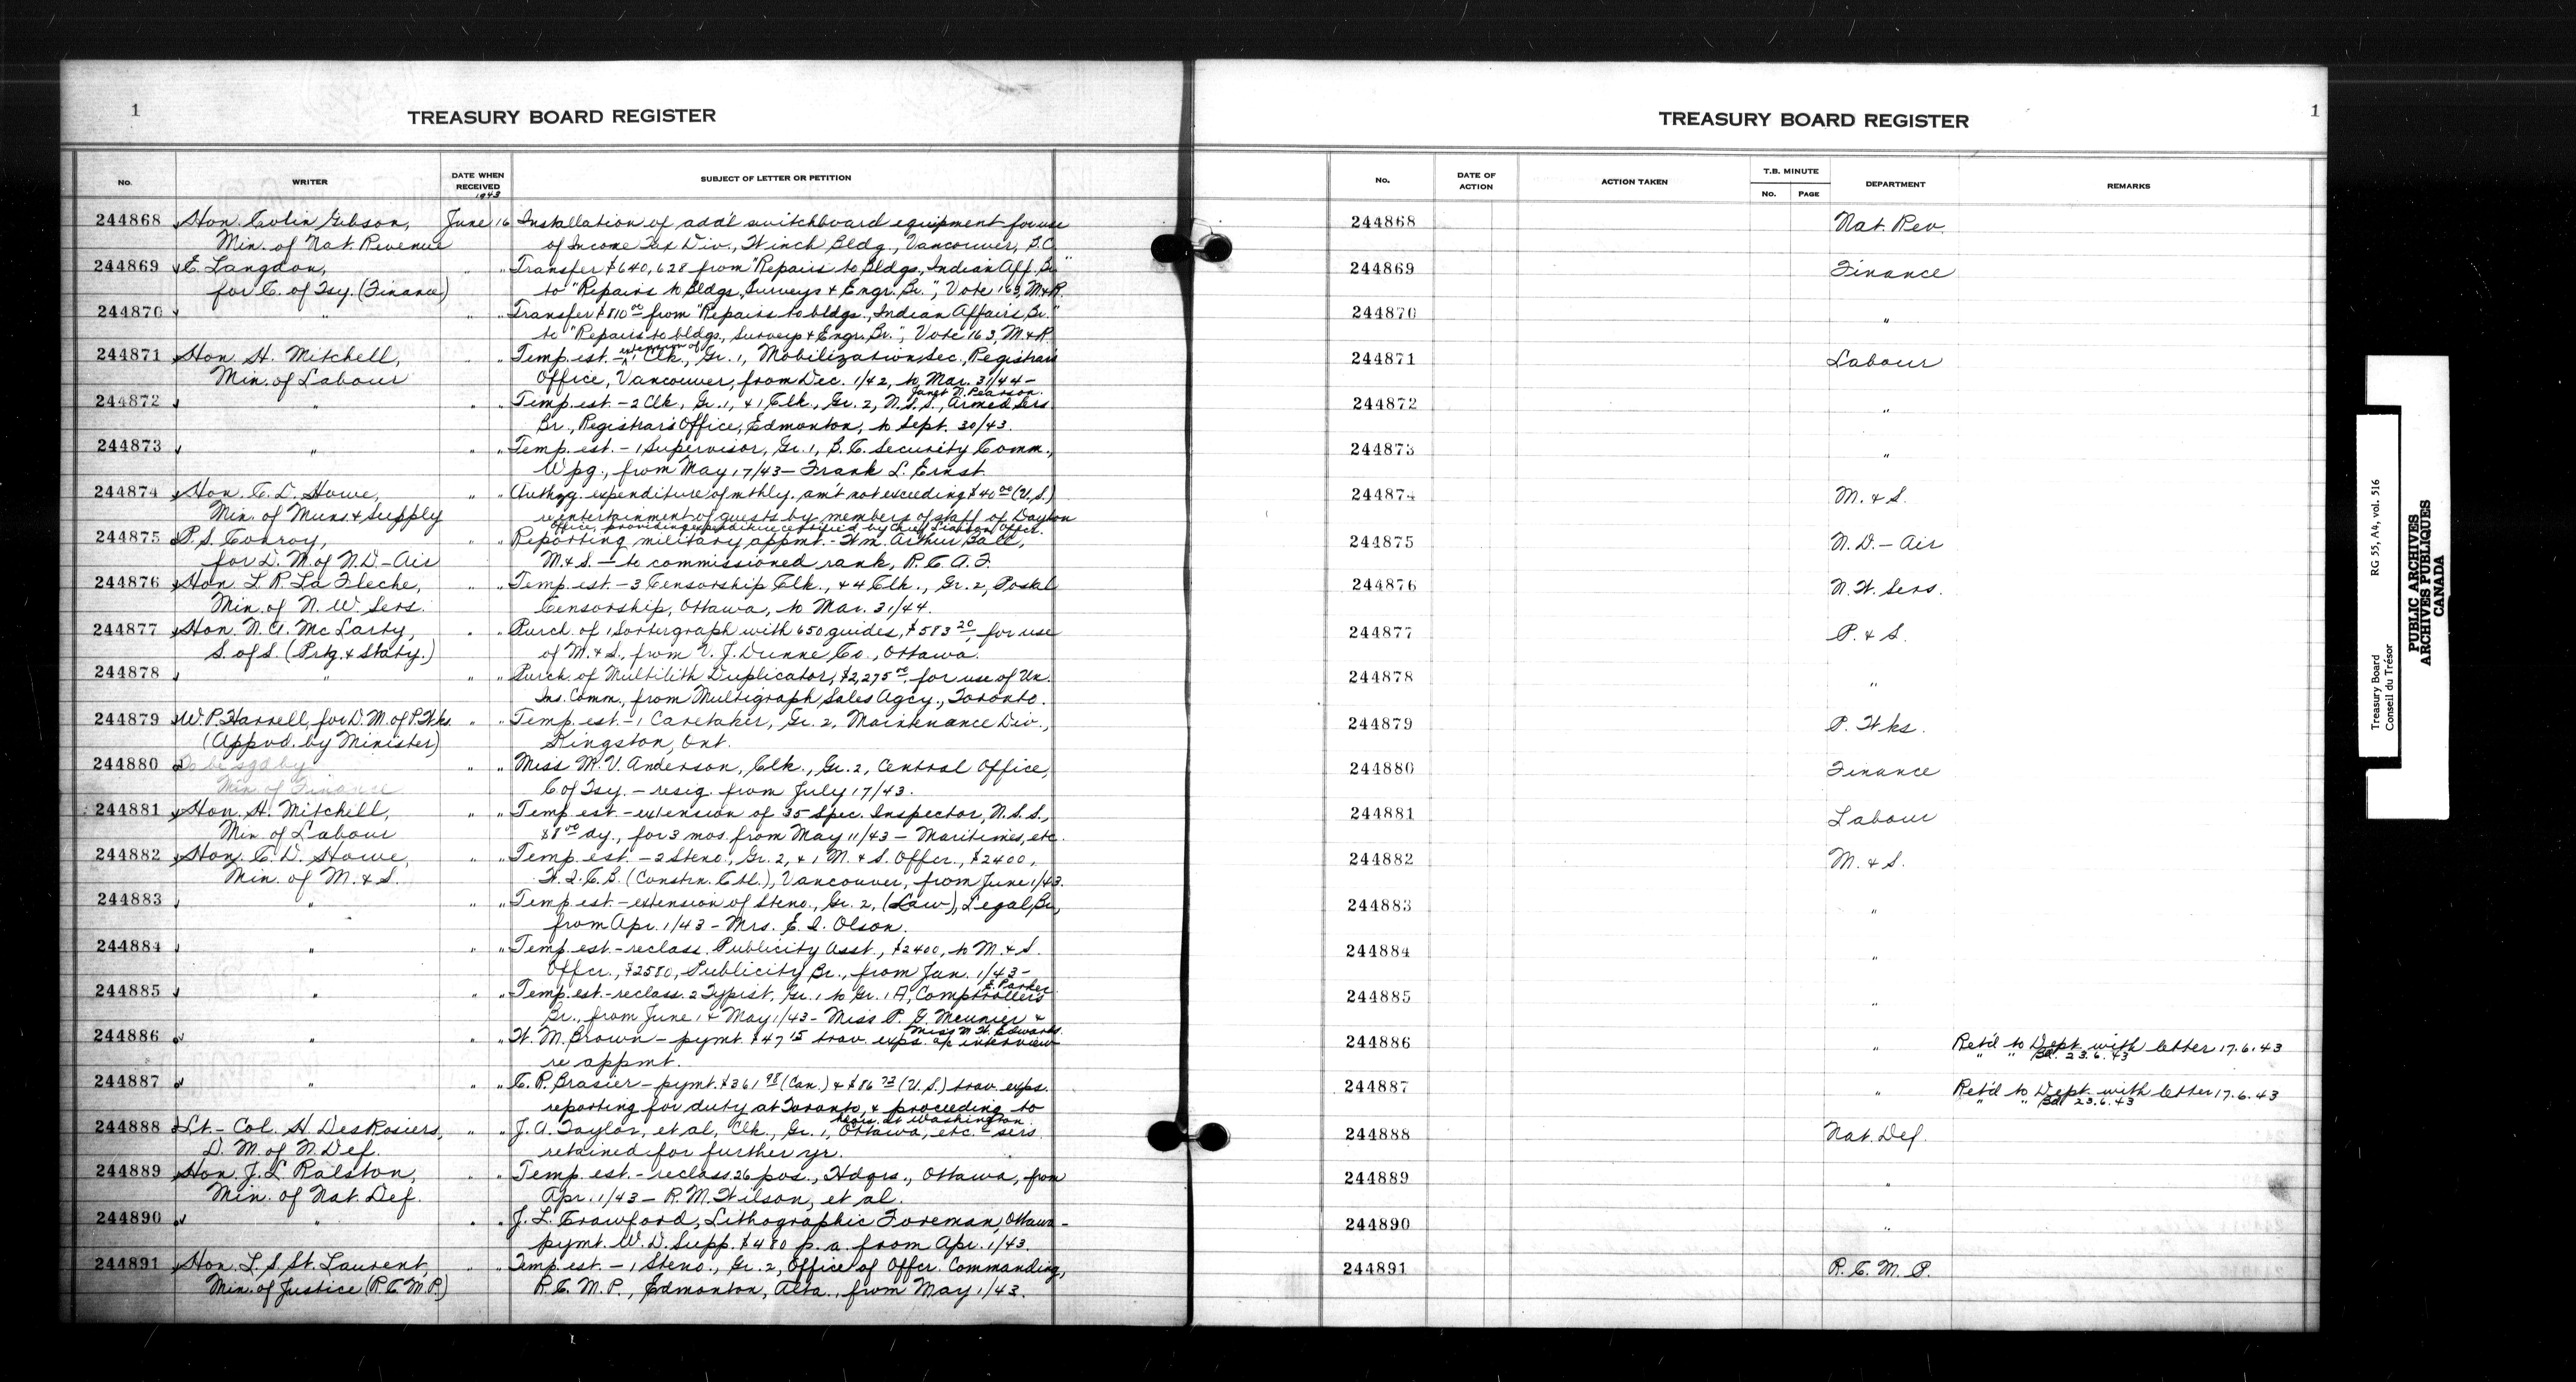 1
TREASURY BOARD REGISTER
No.
WRITER
DATE WHEN RECEIVED
1943
SUBJECT OF LETTER OR PETITION
244868 Hon. Colin Gibson, June 16 Installation of add'l switchboard equipment for use
Min. of Nat. Revenue of Income Tax Div., Winch Bldg., Vancouver, B.C.
244869 C. Langdon, " " Transfer $640,628 from "Repairs to Bldgs., Indian Aff. Br."
for C. of Tsy. (Finance) to "Repairs to Bldgs., Surveys & Engr. Br.", Vote 163, M&R.
244870 " " " Transfer $810.00 from "Repairs to bldgs., Indian Affairs Br."
to "Repairs to bldgs., Surveys & Engr. Br.", Vote 163, M&R.
244871 Hon. H. Mitchell, " " Temp. est. – extension of 1 Clk., Gr. 1, Mobilization Sec., Registrar's
Min. of Labour Office, Vancouver, from Dec. 1/42, to Mar. 31/44 –
Janet D. Pearson.
244872 " " " Temp. est. – 2 Clk., Gr. 1, & 1 Clk., Gr. 2, N.S.S., Armed Sers.
Br., Registrar's Office, Edmonton, to Sept. 30/43.
244873 " " " Temp. est. – 1 Supervisor, Gr. 1, B.C. Security Comm.,
Wpg., from May 17/43 – Frank L. Ernst.
244874 Hon. C. D. Howe, " " Authzg. expenditure of mthly. am't not exceeding $40.00 (U.S.)
Min. of Muns. & Supply re entertainment of guests by members of staff of Dayton
Office, providing expenditure certified by Chief Liaison Officer.
244875 P. S. Conroy, " " Reporting military appmt. – Wm. Arthur Ball,
for D. M. of N.D – Air M. & S. – to commissioned rank, R.C.A.F.
244876 Hon. L. R. La Fleche, " " Temp. est. – 3 Censorship Clk., & 4 Clk., Gr. 2, Postal
Min. of N. W. Sers. Censorship, Ottawa, to Mar. 31/44.
244877 Hon. N. A. McLarty, " " Purch. of 1 Sortergraph with 650 guides, $583.20, for use
S. of S. (Prtg. & Staty.) of M. & S., from V. J. Dunne Co., Ottawa.
244878 " " " Purch. of Multilith Duplicator, $2,275.00, for use of Un.
Ins. Comm., from Multigraph Sales Agcy., Toronto.
244879 W. P. Harrell, for D.M. of P. Wks. " " Temp. est. – 1 Caretaker, Gr. 2, Maintenance Div.,
(Appvd. by Minister) Kingston, Ont.
244880 To be sgd by " " Miss M. V. Anderson, Clk., Gr. 2, Central Office,
Min. of Finance C of Tsy. – resig. from July 17/43.
244881 Hon. H. Mitchell, " " Temp. est. – extension of 35 Spec. Inspector, N.S.S.,
Min. of Labour $8.00 dy., for 3 mos. from May 11/43 – Maritimes, etc.
244882 Hon. C. D. Howe, " " Temp. est. – 2 Steno., Gr. 2, & 1 M. & S. Offcr., $2400,
Min. of M. & S. W.I.C.B. (Constn. Ctl.), Vancouver, from June 1/43.
244883 " " " Temp. est. – extension of Steno., Gr. 2, (Law), Legal Br.,
from Apr. 1/43 – Mrs. E. I. Olson.
244884 " " " Temp. est. – reclass. Publicity Asst., $2400, to M. & S.
Offcr., $2580, Publicity Br., from Jan. 1/43 –
E. Parker
244885 " " " Temp. est. – reclass. 2 Typist, Gr. 1 to Gr. 1A, Comptroller's
Br., from June 1 & May 1/43 – Miss P. G. Meunier &
Miss M. W. Edwards.
244886 " " " W. M. Brown – pymt. $47.15 trav. exps. ap interview
re appmt.
244887 " " " C. R. Brasier – pymt. $361.98 (Can.) & $86.73 (U.S.) trav. exps.
reporting for duty at Toronto, & proceeding to
hdqrs. at Washington.
244888 Lt-Col. H. DesRosiers, " " J. A. Taylor, et al, Clk., Gr. 1, Ottawa, etc. – sers.
D. M. of N. Def. retained for further yr.
244889 Hon. J. L. Ralston, " " Temp. est. – reclass. 26 pos., Hdqrs., Ottawa, from
Min. of Nat. Def. Apr. 1/43 – R. M. Wilson, et al.
244890 " " " J. L. Crawford, Lithographic Foreman, Ottawa –
pymt. W. D. Supp. $480 p.a. from Apr. 1/43.
244891 Hon. L. S St. Laurent, " " Temp. est. – 1 Steno., Gr. 2, Office of Offcr. Commanding,
Min. of Justice (R.C.M.P.) R.C.M.P., Edmonton, Alta., from May 1/43.
TREASURY BOARD REGISTER
1
No.
DATE OF ACTION
ACTION TAKEN
T.B. MINUTE
No.
PAGE
DEPARTMENT
REMARKS
244868 Nat. Rev.
244869 Finance
244870 "
244871 Labour
244872 "
244873 "
244874 M. & S.
244875 N. D. – Air
244876 N. W. Sers.
244877 P. & S.
244878 "
244879 P. Wks.
244880 Finance
244881 Labour
244882 M. & S.
244883 "
244884 "
244885 "
244886 " Ret'd to Dept. with letter 17.6.43
" " Bd. 23.6.43
244887 " Ret'd to Dept. with letter 17.6.43
" " Bd. 23.6.43
244888 Nat. Def.
244889 "
244890 "
244891 R. C. M. P.
Treasury Board
Conseil du Trésor
RG 55, A4, vol. 516
PUBLIC ARCHIVES
ARCHIVES PUBLIQUES
CANADA